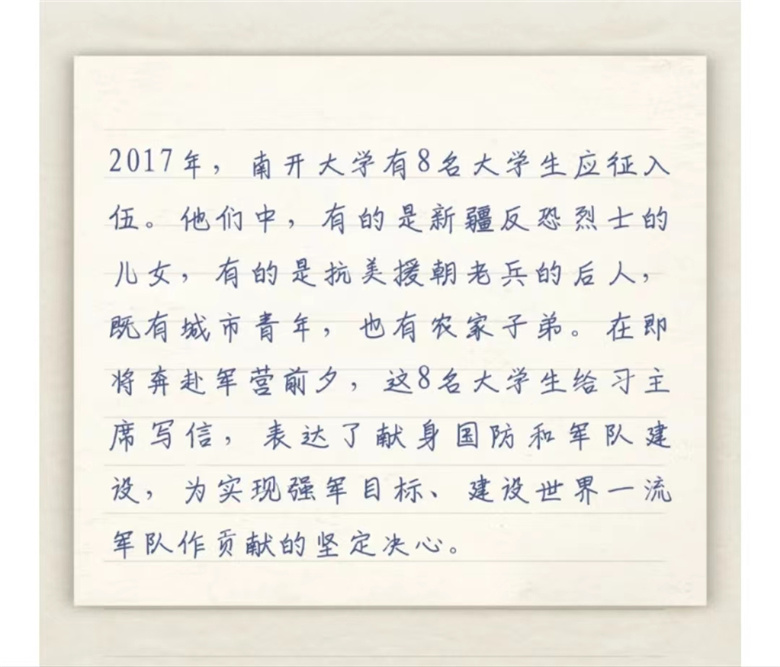 2017年，南开大学有8名大学生应征入
伍。他们中，有的是新疆反恐烈士的
儿女，有的是抗美援朝老兵的后人，
既有城市青年，也有农家子弟。在即
将奔赴军营前夕，这8名大学生给习主
席写信，表达了献身国防和军队建
设，为实现强军目标、建设世界一流
军队作贡献的坚定决心。